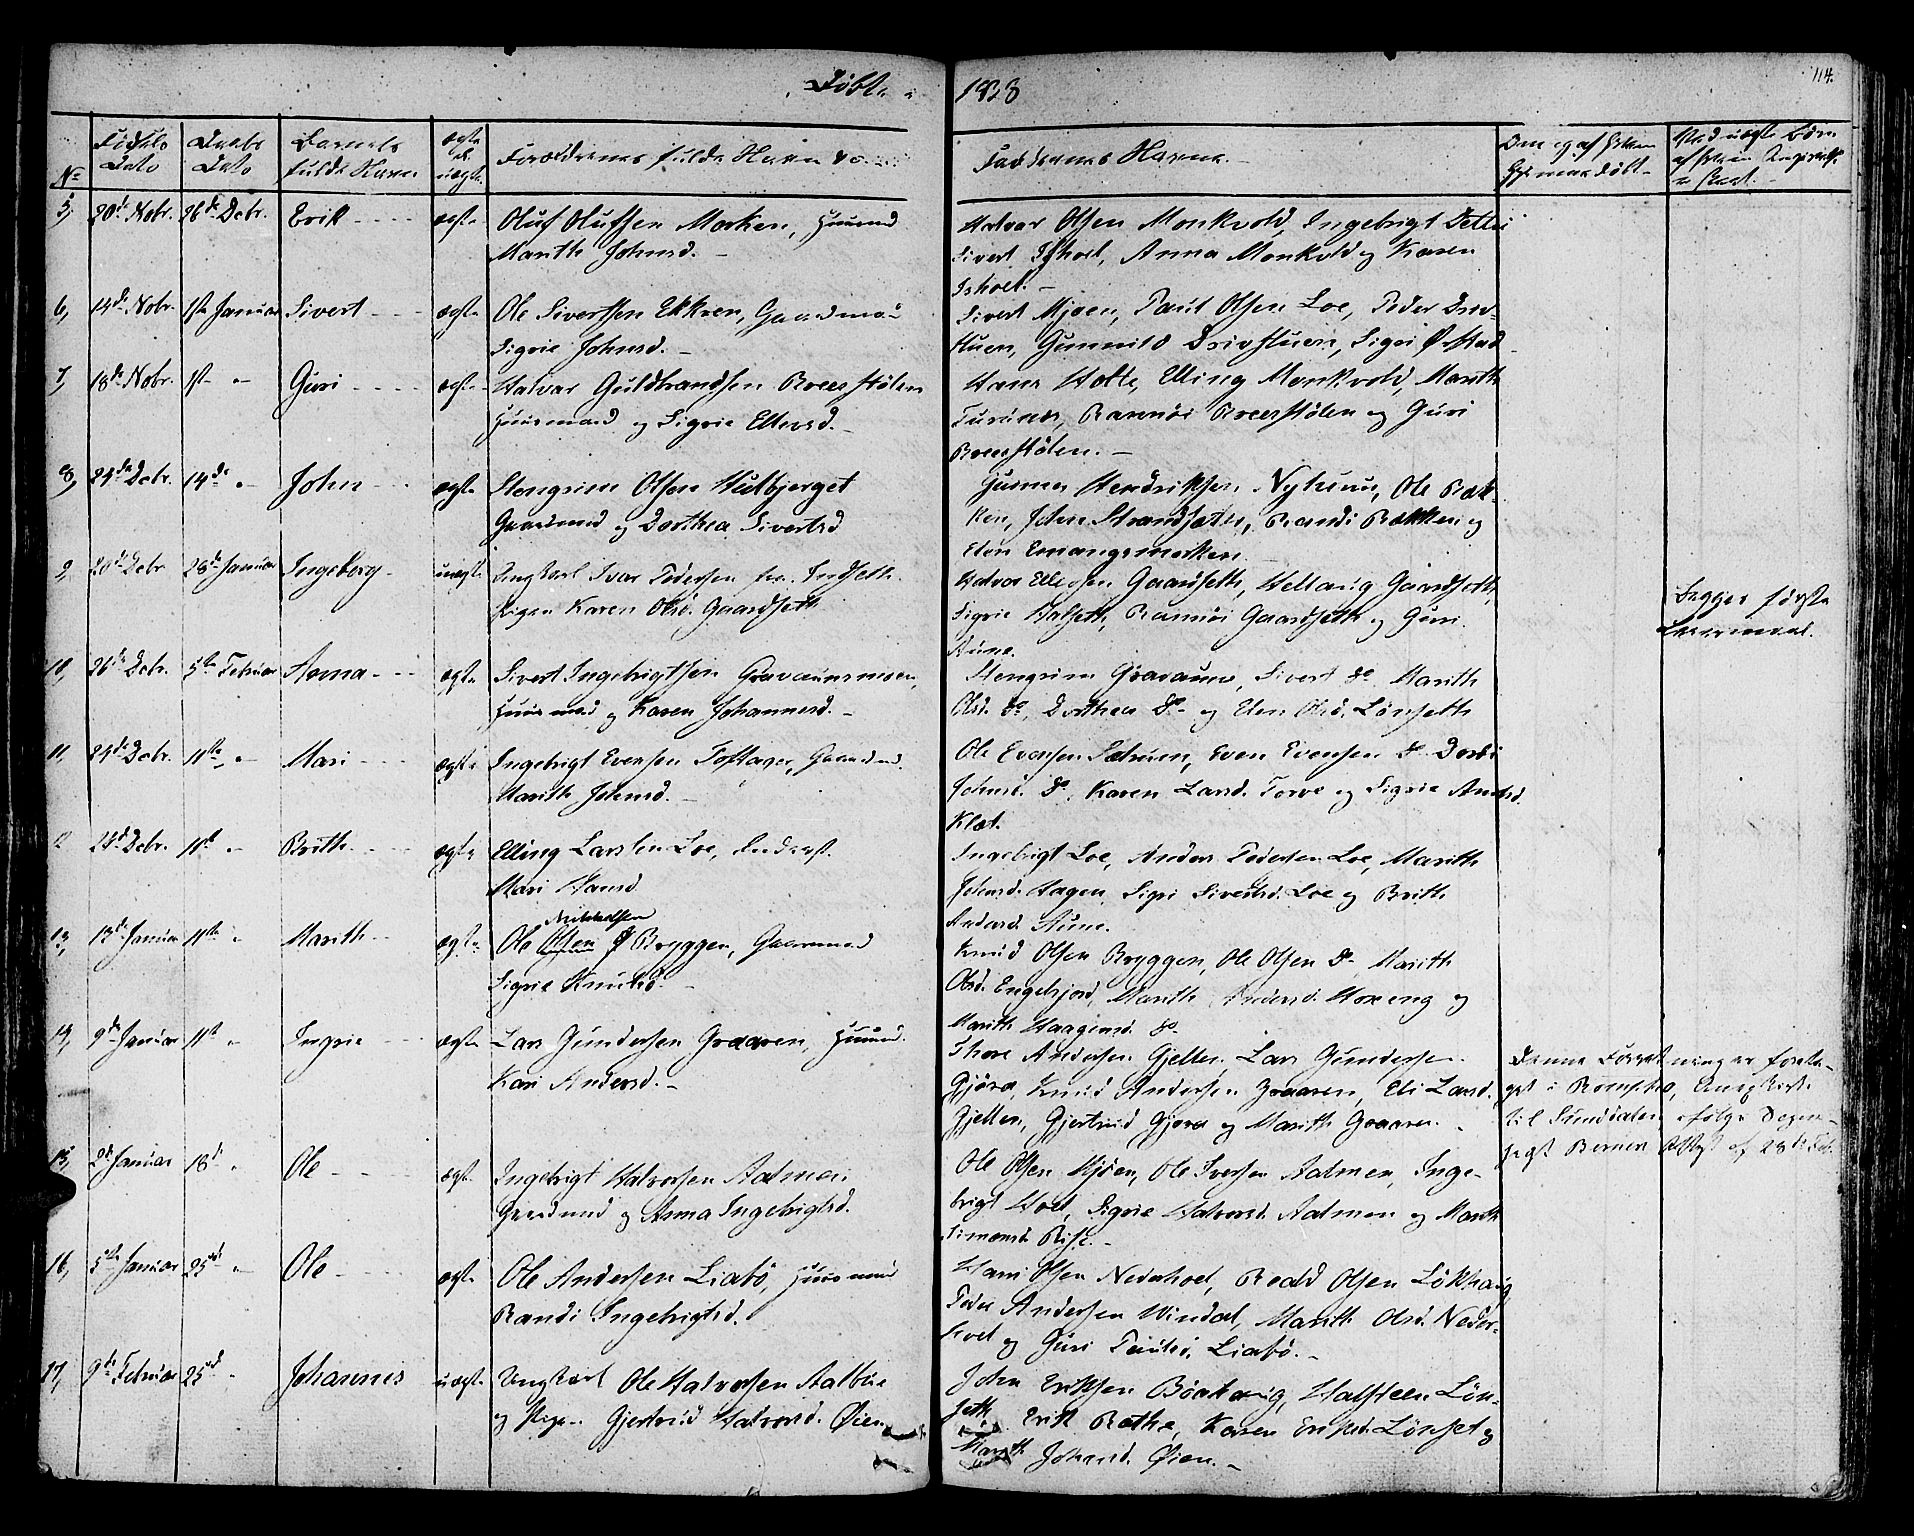 Døbte 1828
114.
No
Fødsels Dato
Daabs Dato
Barnets fulde Navn
ægte el. uægte
Forældrenes fulde Navn &c.
Faddernes Navne.
5, 20de Nobr. 26de Debr. Erik ægte Oluf Olufsen Morken, Huusmd
Marith Johnsd.
Halvor Olsen Monkvold, Ingebrigt Detlie
Sivert Ishoel, Anna Monkvold og Karen
Ishoel.
6, 14de Nobr. 1ste Januar Sivert ægte Ole Sivertsen Ekkren, Gaardma
Sigrie Johnsd.
Sivert Mjøen, Poul Olsen Loe, Peder Driv-
stuen, Gunnild Drivstuen, Sigri Ørstad
7, 18de Nobr. 1ste " Guri ægte Halvor Guldbrandsen Breestølen
Huusmand og Sigrie Ellevsd.
Hans Holte, Elling Monkvold, Marith
Furunes, Rannøi Breestølen og Guri
Breestølen.
8, 24de Debr. 14de " John ægte Stengrim Olsen Hulbjerget
Gaardmd og Dorthea Sivertsd
Gunner Hendriksen Nyhuus, Ole Ræk-
ken, John Strandsæter, Randi Rækken og
Elen Emangsmorken
9, 20de Debr. 28de Januar Ingeborg uægte Ungkarl Ivar Pedersen fra Indseth
Pigen Karen Olsd. Gaardseth
Halvor Ellevsen Gaardseth, Hellaug Gaardseth,
Sigrie Halseth, Rannøi Gaardseth og Guri
Aune.
Begges første
Leiermaal.
10, 26de Debr. 5te Februar Anna ægte Sivert Ingebrigtsen Gravaunsmoen,
Huusmd og Karen Johannesd.
Stengrim Gravaune, Sivert do Marith
Olsd. do, Dorthea do og Elen Olsd. Lønseth
11, 24de Debr. 11te " Mari ægte Ingebrigt Evensen Toftager, Gaardmd.
Marith Johnsd.
Ole Evensen Sætrum, Even Evensen do Dordi
Johnsd. do, Karen Larsd. Torve og Sigrie Andersd.
Klæt.
24de Debr. 11te " Brith ægte Elling Larsen Loe, Inderst.
Mari Hansd
Ingebrigt Loe, Anders Pedersen Loe, Marith
Johnsd. Hagen, Sigri Sivertsd. Loe og Brith
Andersd. Aune.
13, 13de Januar 11te " Marith ægte Ole Olsen Bryggen, Gaardmand
Sigrie Knudsd.
Knud Olsen Bryggen, Ole Olsen do Marith
Olsd. Engelsjord, Marith Andersd. Horeng og
Marith Haagensd. do
14, 9de Januar 11te " Ingrie ægte Lars Gundersen Graaren, Huusmd.
Kari Andersd.
Thore Andersen Gjellen, Lars Gundersen
Gjøra, Knud Andersen Graaren, Eli Larsd.
Gjellen, Gjertrud Gjøra og Marith Graaren.
Denne Forretning er foreta-
get i Romfho, Annexkirke
til Sunddalen
15, 2de Januar 18de " Ole ægte Ingebrigt Halvorsen Aalmen
Gaardmd og Anna Ingebrigtsd.
Ole Olsen Mjøen, Ole Iversen Aalmen, Inge-
brigt Hoel, Sigrie Halvorsd. Aalmen og Marith
Simonsd. Rise.
16, 5te Januar 25de " Ole ægte Ole Andersen Liabø, Huusmand
Randi Ingebrigtsd.
Hans Olsen Nederhoel, Roald Olsen Løkhaug,
Peder Andersen Windal, Marith Olsd. Neder-
hoel og Guri Poulsd. Liabø.
17, 9de Februar 25de " Johannes uægte Ungkarl Ole Halvorsen Aalbue
og Pigen Gjertrud Halvorsd. Øien
John Eriksen Bøehaug, Halsteen Løn-
seth, Erik Rathe, Karen Eriksd. Lønset og
Marith Johnsd. Øien.